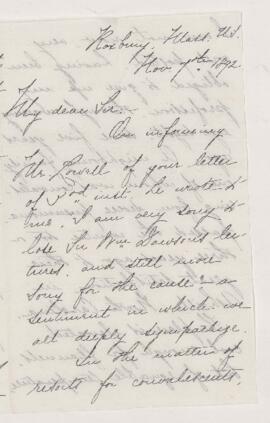 Roxbury, Mass. U.S.
Nov 7th 1892
My dear Sir,-
On informing
Mr. Lowell of your letter
of 3rd inst. he wrote to
me, "I am very sorry to
lose Sir Wm Dawson's lec-
tures, and still more
sorry for the cause" - a
sentiment in which we
all deeply sympathize.
In the matter of
resorts for convalescents,